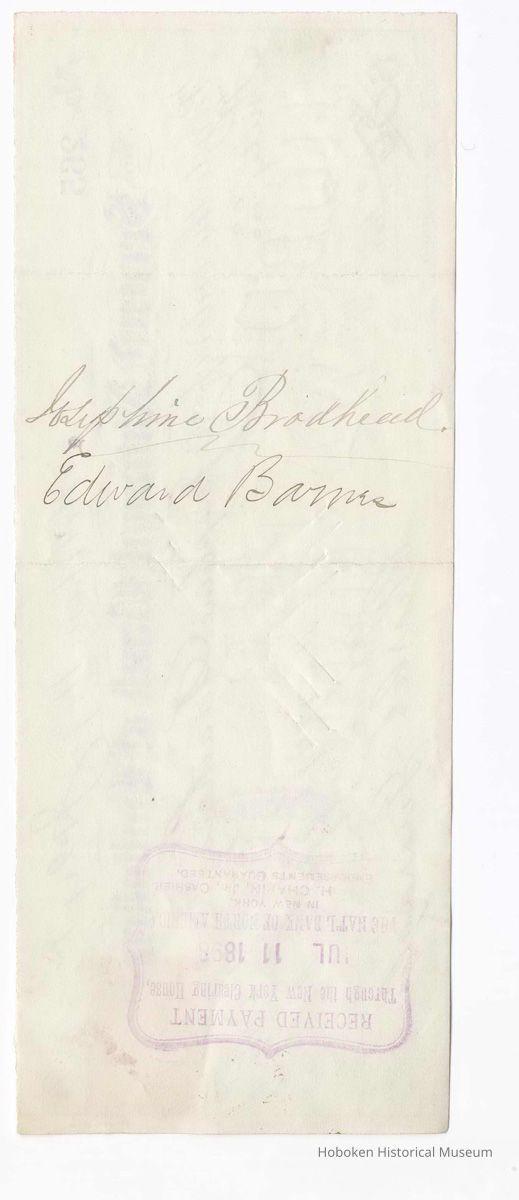 Josephine Brodhead.
Edward Barnes
RECEIVED PAYMENT
Through the New York Clearing House,
JUL 11 189
THE NAT'L BANK OF NORTH AMERICA
IN NEW YORK.
H. CHAPIN, JR., CASHIER
ENDORSEMENTS GUARANTEED.
No. 265
Hoboken Historical Museum